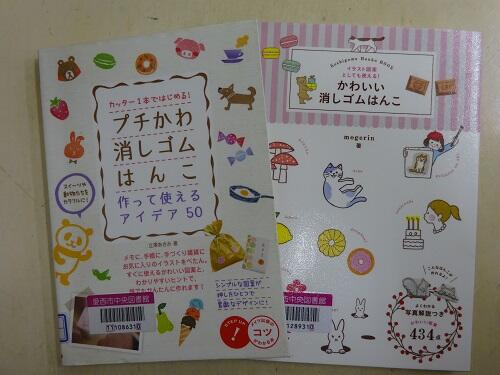 カッター1本ではじめる!
プチかわ
消しゴム
はんこ
作って使える
アイデア50
スイーツや
動物たちを
カラフルに!
立澤あさみ 著
メモに、手帳に、手づくり雑貨に
お気に入りのイラストをぺたん。
すぐに使えるかわいい図案と、
わかりやすいヒントで、
誰でもかんたんに作れます!
シンプルな図案が
押し方ひとつで
素敵なデザインに!
コツ
愛西市中央図書館
111086310
Keshigomu Hanko BOOK
イラスト図案
としても使える!
かわいい
消しゴムはんこ
mogerin
著
こんな図案も
作れるよ
よくわかる
写真解説つき
かわいい図案
434点
西市中央図書館
1128931